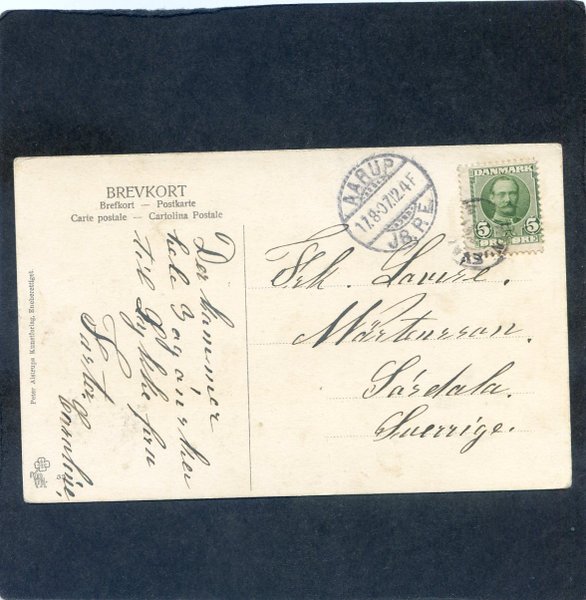 BREVKORT
Brefkort — Postkarte
Carte postale — Cartolina Postale
AARUP
17.8.07.12.4 F
JB.P.E.
DANMARK
5 5
ØRE
Frk. Lovise.
Mårtensson.
Sösdala.
Sverrige.
Der kommer
hele
til Lykke fra
Peter Alstrups Kunstforlag, Eneberettiget.